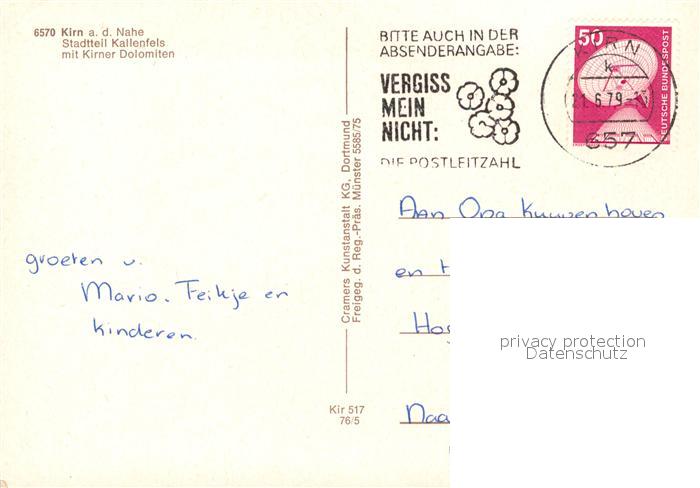 6570 Kirn a. d. Nahe
Stadtteil Kallenfels
mit Kirner Dolomiten
BITTE AUCH IN DER
ABSENDERANGABE:
VERGISS
MEIN
NICHT:
DIE POSTLEITZAHL
50
DEUTSCHE BUNDESPOST
KIRN
k
21.6.79
657
Cramers Kunstanstalt KG, Dortmund
Freigeg. d. Reg.-Präs. Münster 5585/75
Aan Opa Kuuvenhoven
en
groeten v.
Mario. Feikje en
kinderen.
Kir 517
76/5
privacy protection
Datenschutz